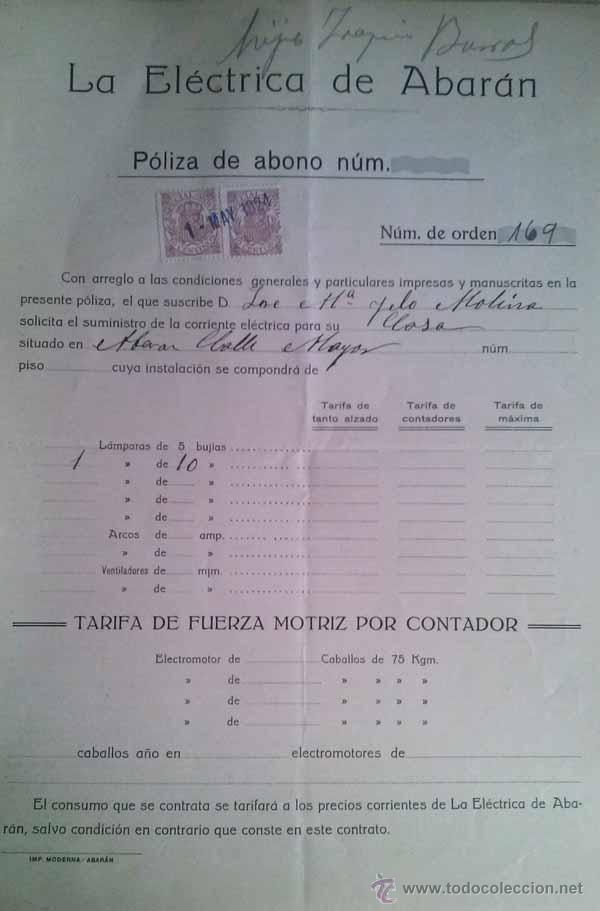 Joaquin
La Eléctrica de Abarán
Póliza de abono núm.
1 - MAY 1924
Núm. de orden 169
Con arreglo a las condiciones generales y particulares impresas y manuscritas en la
presente póliza, el que suscribe D. Jose Mª Molina
solicita el suministro de la corriente eléctrica para su Casa
situado en Abaran Calle Mayor núm.
piso cuya instalación se compondrá de
Tarifa de tanto alzado Tarifa de contadores Tarifa de máxima
Lámparas de 5 bujías
1 » de 10 »
» de »
» de »
Arcos de amp.
» de »
Ventiladores de m|m.
» de »
TARIFA DE FUERZA MOTRIZ POR CONTADOR
Electromotor de Caballos de 75 Kgm.
» de » » » »
» de » » » »
» de » » » »
caballos año en electromotores de
El consumo que se contrata se tarifará a los precios corrientes de La Eléctrica de Aba-
rán, salvo condición en contrario que conste en este contrato.
IMP. MODERNA.-ABARÁN
www.todocoleccion.net